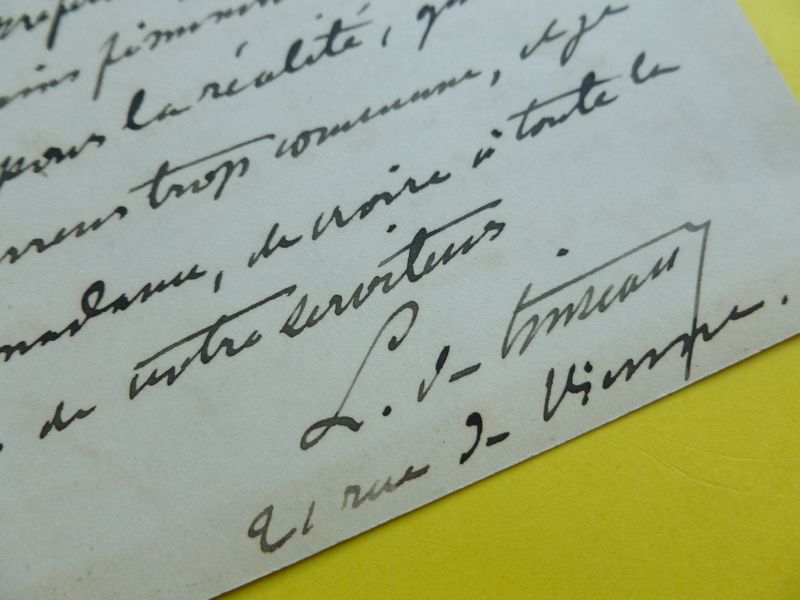 pour la réalité, qu
trop commune, et je
madame, de croire à toute la
de votre serviteur
L. de Tinseau
21 rue de Vienne.